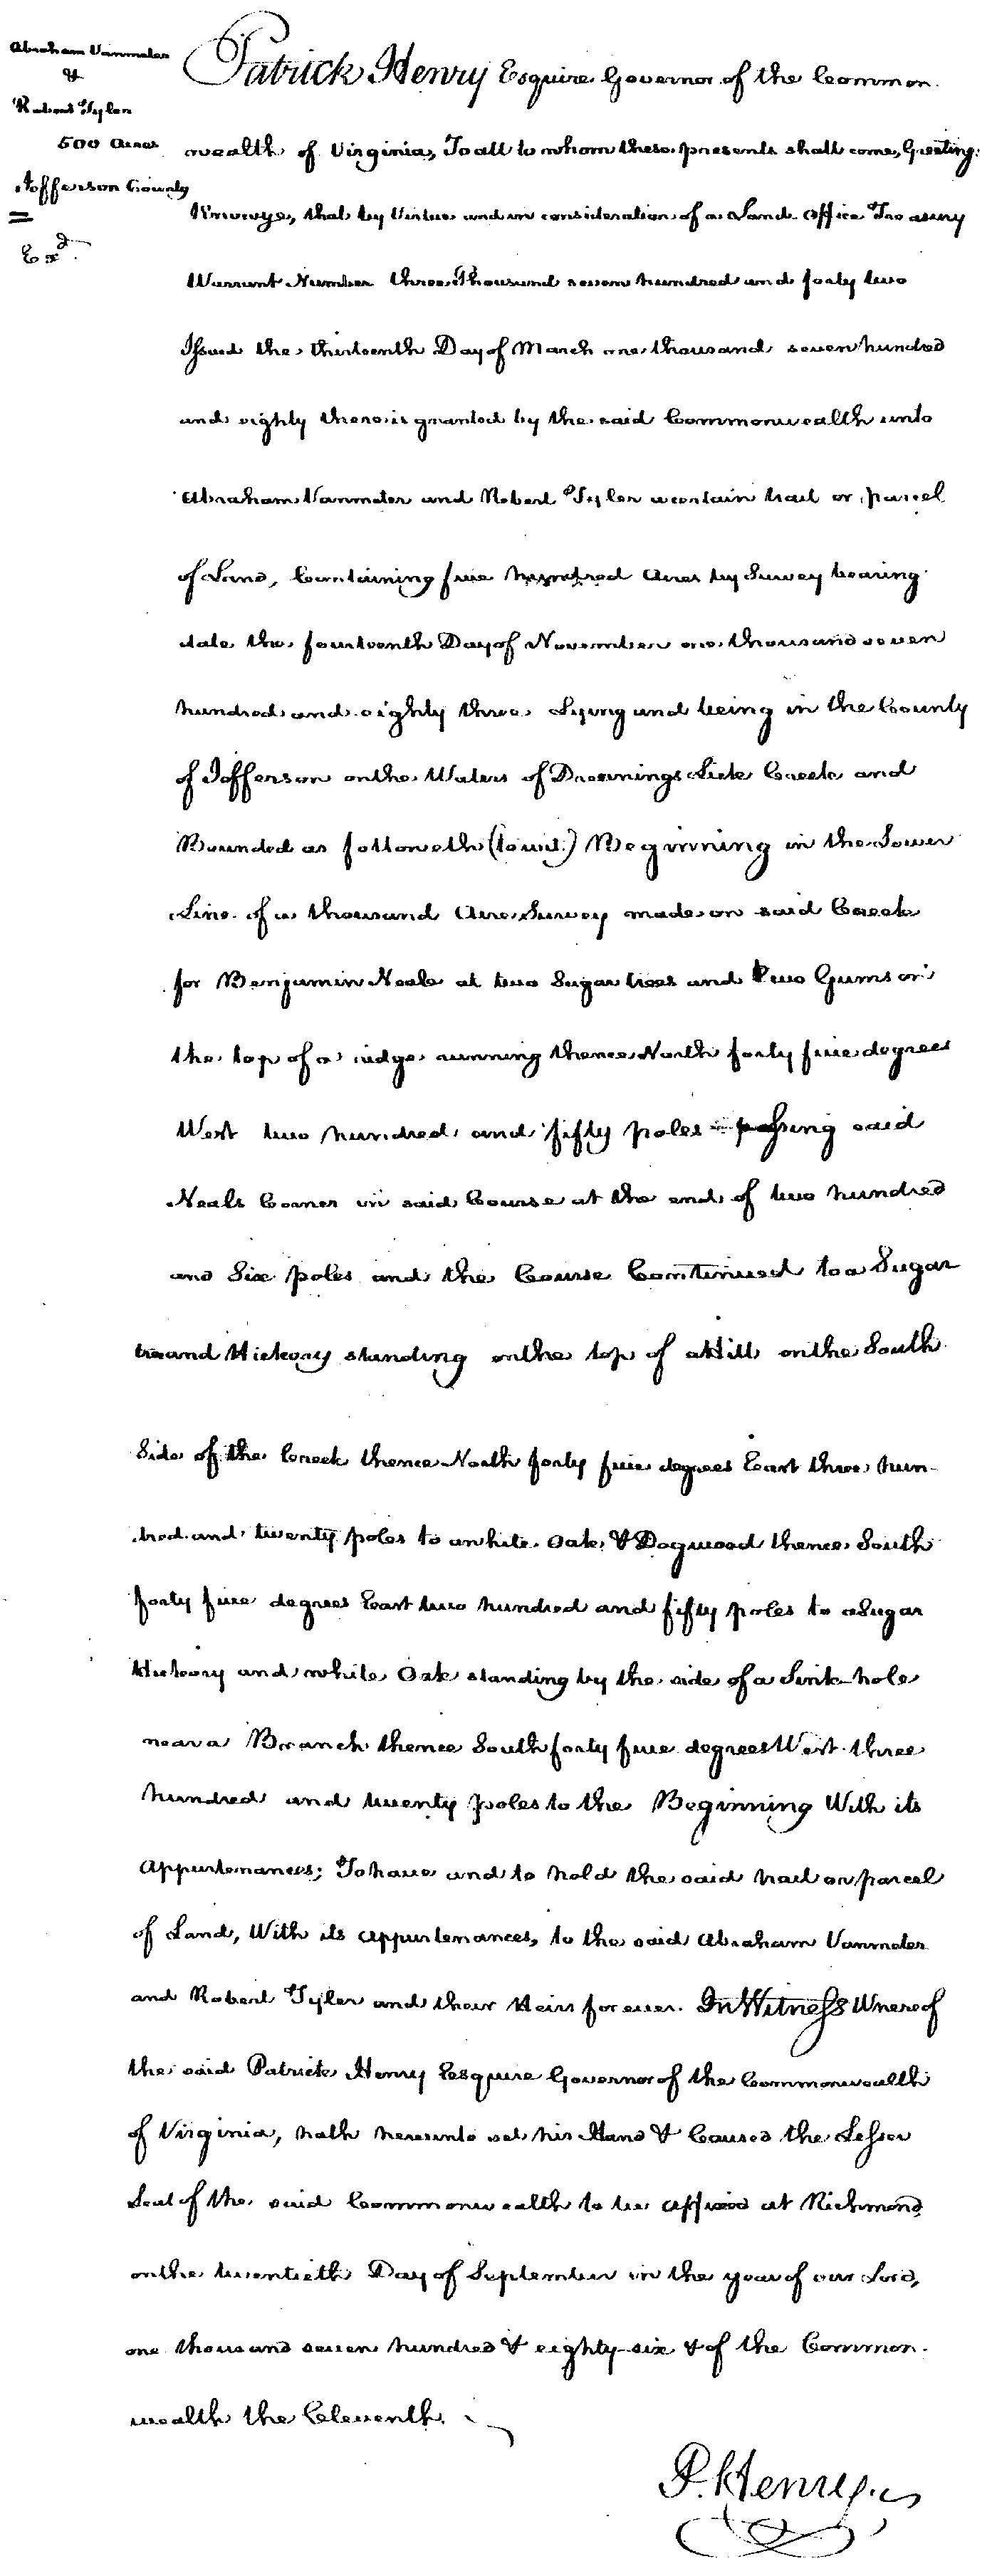 Abraham Vanmeter
&
Robert Tyler
500 Acres
Jefferson County
=
Exd.
Patrick Henry Esquire Governor of the Common-
wealth of Virginia, To all to whom these presents shall come, Greeting:
Know ye, that by Virtue and in consideration of a Land Office Treasury
Warrant Number three Thousand seven hundred and forty two
Issued the thirteenth Day of March one thousand seven hundred
and eighty there is granted by the said Commonwealth unto
Abraham Vanmeter and Robert Tyler a certain tract or parcel
of Land, Containing five hundred Acres by Survey bearing
date the fourteenth Day of November one thousand seven
hundred and eighty three Lying and being in the County
of Jefferson on the Waters of Drennings Lick Creek and
Bounded as followeth (to wit.) Beginning in the Lower
Line of a thousand Acre Survey made on said Creek
for Benjamin Neale at two Sugar trees and two Gums on
the top of a ridge running thence North forty five degrees
West two hundred and fifty poles passing said
Neals Corner in said Course at the end of two hundred
and Six poles and the Course Continued to a Sugar
tree and Hickory standing on the top of a Hill on the South
Side of the Creek thence North forty five degrees East three hun-
dred and twenty poles to a white Oak & Dogwood thence South
forty five degrees East two hundred and fifty poles to a Sugar
Hickory and white Oak standing by the side of a Sink hole
near a Branch thence South forty five degrees West three
hundred and twenty poles to the Beginning With its
Appurtenances; To have and to hold the said tract or parcel
of Land, With its appurtenances, to the said Abraham Vanmeter
and Robert Tyler and their Heirs forever. In Witness Whereof
the said Patrick Henry Esquire Governor of the Commonwealth
of Virginia, hath hereunto set his Hand & Caused the Lesser
Seal of the said Commonwealth to be affixed at Richmond
on the twentieth Day of September in the year of our Lord,
one thousand seven hundred & eighty six & of the Common-
wealth the Eleventh.
P. Henry